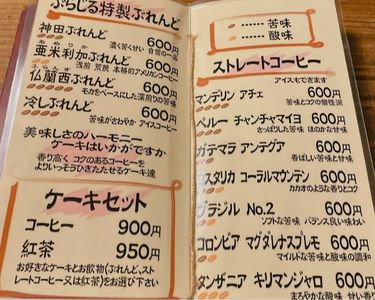 ぶらじる特製ぶれんど
神田ぶれんど 600円
濃く苦くせい 自信の一品
亜米利加ぶれんど 600円
浅煎 荒挽 本格的アメリカンコーヒー
仏蘭西ぶれんど 600円
モカをベースにした深煎りの苦味
冷しぶれんど 600円
苦味がさわやか アイスコーヒー
美味しさのハーモニー
ケーキはいかがですか
香り高く コクのあるコーヒーを
よりいっそうひきたたせるケーキ達
ケーキセット
コーヒー 900円
紅茶 950円
お好きなケーキとお飲物(ぶれんど、スト
レートコーヒー又は紅茶)をお選び下さい
……苦味
……酸味
ストレートコーヒー
アイスもできます
マンデリン アチェ 600円
苦味とコクの個性派
ペルー チャンチャマイヨ 600円
さっぱりした苦味 ほのかな甘味
ガテマラ アンテグア 600円
香ばしい苦味と甘味
コスタリカ コーラルマウンテン 600円
カカオのような香りとコク
ブラジル No.2 600円
ソフトな苦味 バランス良い味わい
コロンビア マグダレナスプレモ 600円
マイルドな苦味と酸味の調和
タンザニア キリマンジャロ 600円
まろやかな酸味 甘い香り